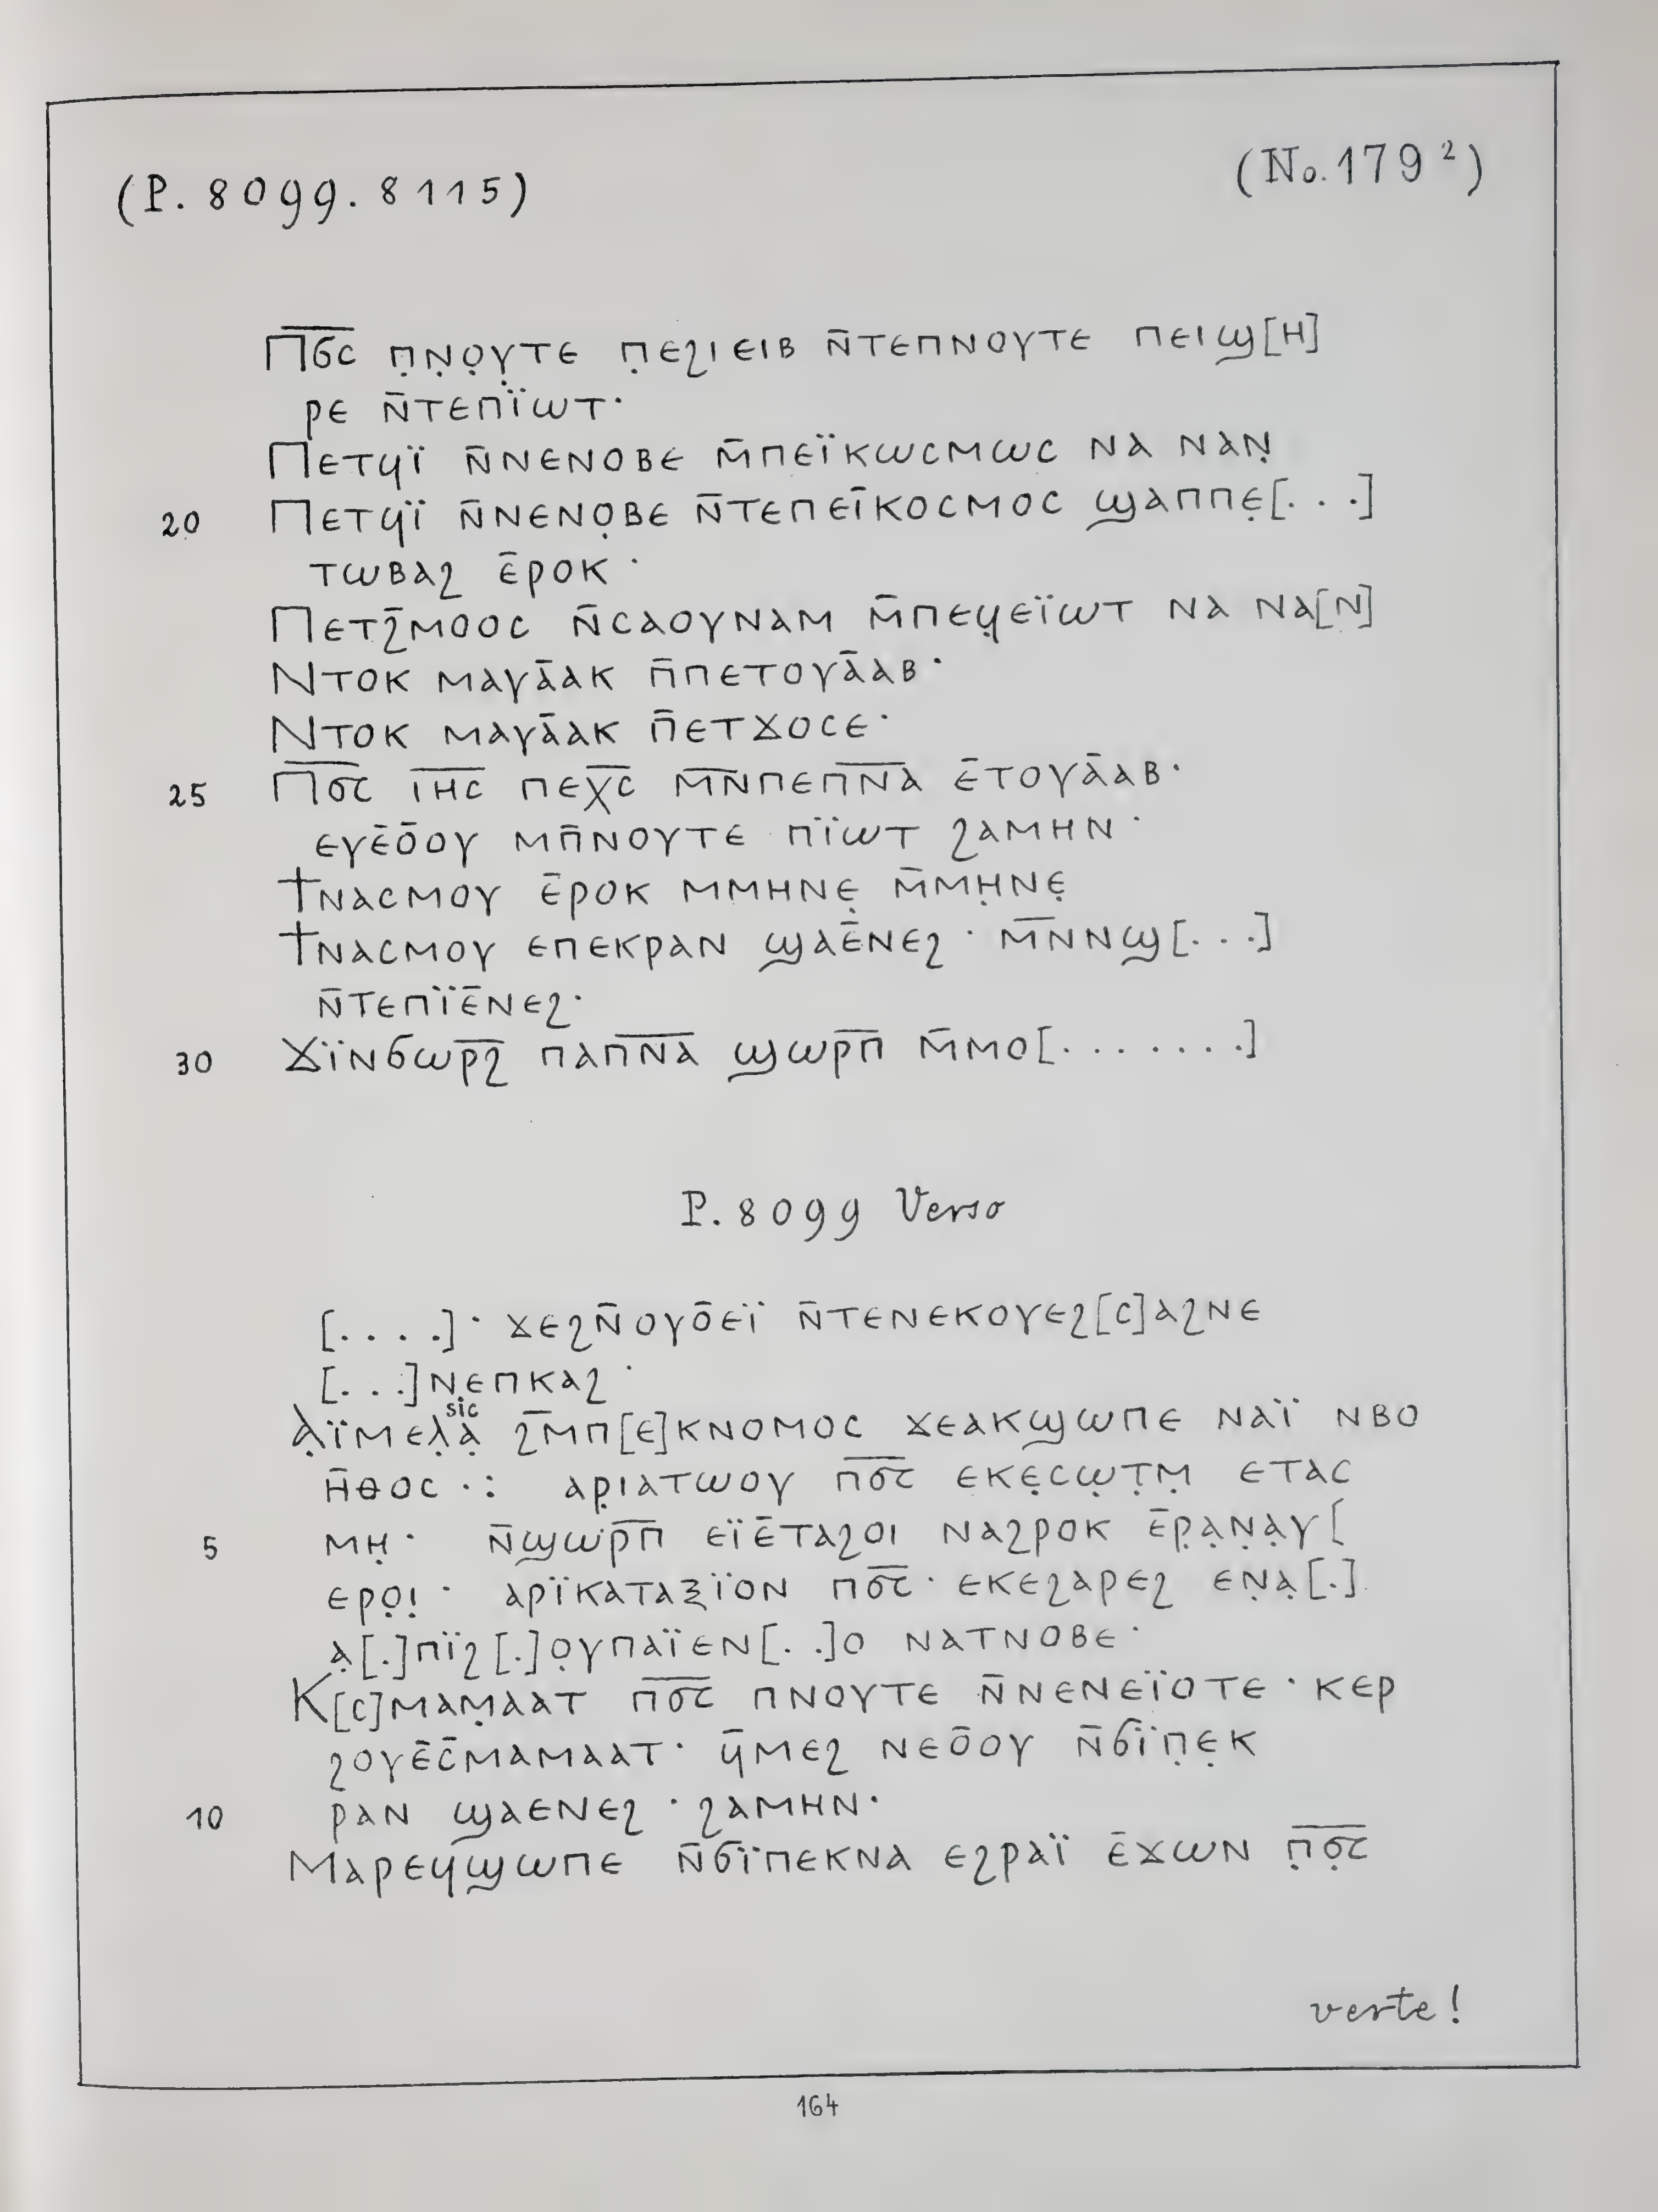 (P. 8099. 8115)
(No. 179²)
Ⲡ̅ϭ̅ⲥ̅ ⲡ̣ⲛ̣ⲟ̣ⲩ̣ⲧⲉ ⲡ̣ⲉϩⲓⲉⲓⲃ ⲛ̄ⲧⲉⲡⲛⲟⲩⲧⲉ ⲡⲉⲓϣ[ⲏ]
ⲣⲉ ⲛ̄ⲧⲉⲡⲓ̈ⲱⲧ·
Ⲡⲉⲧϥⲓ̈ ⲛ̄ⲛⲉⲛⲟⲃⲉ ⲙ̄ⲡⲉⲓ̈ⲕⲱⲥⲙⲱⲥ ⲛⲁ ⲛⲁⲛ̣
20 Ⲡⲉⲧϥⲓ̈ ⲛ̄ⲛⲉⲛⲟ̣ⲃⲉ ⲛ̄ⲧⲉⲡⲉⲓ̄ⲕⲟⲥⲙⲟⲥ ϣⲁⲡⲡⲉ̣[. . .]
ⲧⲱⲃⲁϩ ⲉ̄ⲣⲟⲕ ·
Ⲡⲉⲧϩ̄ⲙⲟⲟⲥ ⲛ̄ⲥⲁⲟⲩⲛⲁⲙ ⲙ̄ⲡⲉϥ̣ⲉⲓ̈ⲱⲧ ⲛⲁ ⲛⲁ[ⲛ]
Ⲛⲧⲟⲕ ⲙⲁⲩⲁ̄ⲁⲕ ⲡ̄ⲡⲉⲧⲟⲩⲁ̄ⲁⲃ·
Ⲛⲧⲟⲕ ⲙⲁⲩⲁ̄ⲁⲕ ⲡ̄ⲉⲧϫⲟⲥⲉ·
25 Ⲡ̅ϭ̅ⲥ̅ ⲓ̅ⲏ̅ⲥ̅ ⲡⲉⲭ̅ⲥ̅ ⲙ̅ⲛ̅ⲡⲉⲡ̅ⲛ̅ⲁ̅ ⲉ̄ⲧⲟⲩⲁ̄ⲁⲃ·
ⲉⲩⲉ̄ⲟ̄ⲟⲩ ⲙⲡ̄ⲛⲟⲩⲧⲉ ⲡⲓ̈ⲱⲧ ϩⲁⲙⲏⲛ·
Ϯⲛⲁⲥⲙⲟⲩ ⲉ̄ⲣⲟⲕ ⲙⲙⲏⲛⲉ̣ ⲙ̄ⲙⲏ̣ⲛⲉ̣
Ϯⲛⲁⲥⲙⲟⲩ ⲉⲡⲉⲕⲣⲁⲛ ϣⲁⲉ̄ⲛⲉϩ · ⲙ̅ⲛ̅ⲛϣ[. . .]
ⲛ̄ⲧⲉⲡⲓ̈ⲉ̄ⲛⲉϩ·
30 Ϫⲓ̈ⲛϭⲱⲣ̅ϩ̅ ⲡⲁⲡ̅ⲛ̅ⲁ̅ ϣⲱⲣ̅ⲡ̅ ⲙ̄ⲙⲟ[. . . . . . .]
P. 8099 Verso
[. . . .]· ϫⲉϩⲛ̄ⲟⲩⲟ̄ⲉⲓ̈ ⲛ̄ⲧⲉⲛⲉⲕⲟⲩⲉϩ[ⲥ]ⲁϩⲛⲉ
[. . .]ⲛ̣ⲉⲡⲕⲁϩ·
Ⲁ̣ⲓ̈ⲙⲉⲗⲁ̣ sic ϩ̅ⲙ̅ⲡ[ⲉ]ⲕⲛⲟⲙⲟⲥ ϫⲉⲁⲕϣⲱⲡⲉ ⲛⲁⲓ̈ ⲛⲃⲟ
ⲏ̄ⲑⲟⲥ ·: ⲁⲣ̣ⲓⲁⲧⲱⲟⲩ ⲡ̅ϭ̅ⲥ̅ ⲉⲕⲉ̣ⲥⲱ̣ⲧ̣ⲙ̣ ⲉⲧⲁⲥ
5 ⲙⲏ̣· ⲛ̄ϣⲱⲣ̅ⲡ̅ ⲉⲓ̈ⲉ̄ⲧⲁϩⲟⲓ ⲛⲁϩⲣⲟⲕ ⲉ̄ⲣ̣ⲁ̣ⲛ̣ⲁ̣ⲩ[
ⲉⲣⲟ̣ⲓ̣ · ⲁⲣⲓ̈ⲕⲁⲧⲁⲝⲓ̈ⲟⲛ ⲡ̅ϭ̅ⲥ̅· ⲉⲕⲉϩⲁⲣⲉϩ ⲉⲛ̣ⲁ̣[.]
ⲁ̣[.]ⲡⲓ̈ϩ[.]ⲟ̣ⲩⲡⲁⲓ̈ⲉⲛ[. .]ⲟ ⲛⲁⲧⲛⲟⲃⲉ·
Ⲕ[ⲥ]ⲙⲁⲙ̣ⲁⲁⲧ ⲡ̅ϭ̅ⲥ̅ ⲡⲛⲟⲩⲧⲉ ⲛ̄ⲛⲉⲛⲉⲓ̈ⲟⲧⲉ · ⲕⲉⲣ
ϩⲟⲩⲉ̄ⲥ̄ⲙⲁⲙⲁⲁⲧ· ϥ̄ⲙⲉϩ ⲛⲉⲟ̄ⲟⲩ ⲛ̄ϭⲓ̈ⲡ̣ⲉ̣ⲕ
10 ⲣⲁⲛ ϣⲁⲉⲛⲉϩ · ϩⲁⲙⲏⲛ·
Ⲙⲁⲣⲉϥϣⲱⲡⲉ ⲛ̄ϭⲓ̈ⲡⲉⲕⲛⲁ ⲉϩⲣⲁⲓ̈ ⲉ̄ϫⲱⲛ ⲡ̣̅ϭ̣̅ⲥ̅
verte!
164